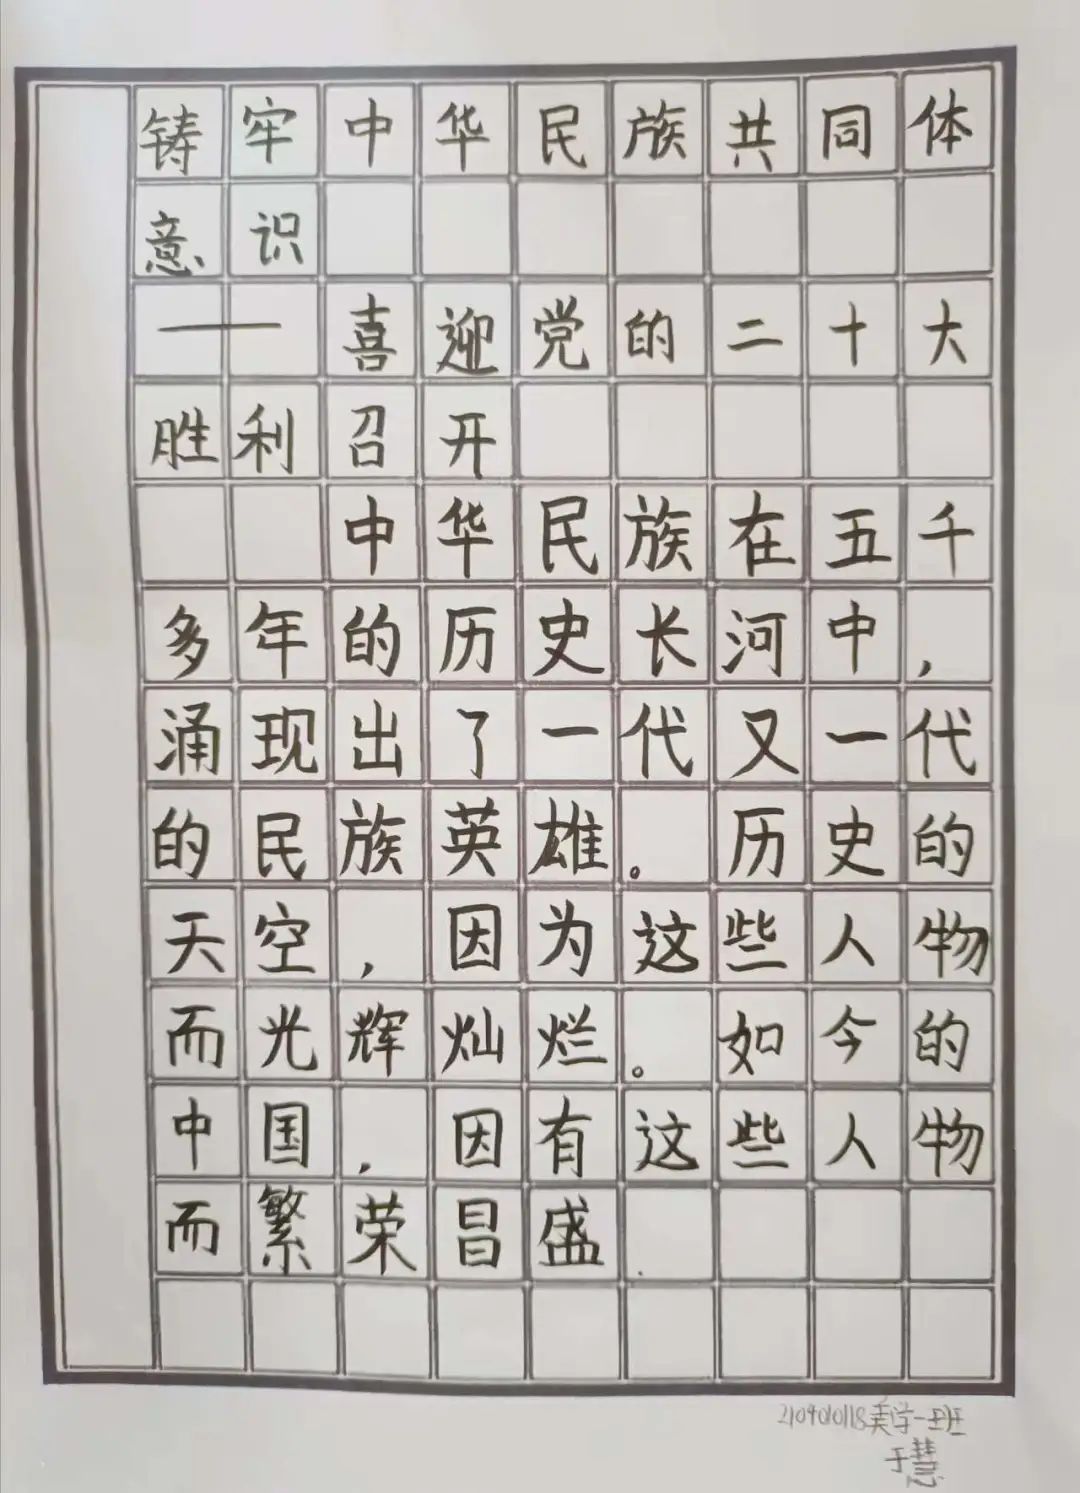 铸牢中华民族共同体
意识
——喜迎党的二十大
胜利召开
中华民族在五千
多年的历史长河中，
涌现出了一代又一代
的民族英雄。历史的
天空，因为这些人物
而光辉灿烂。如今的
中国，因有这些人物
而繁荣昌盛.
210401018美学一班
于慧